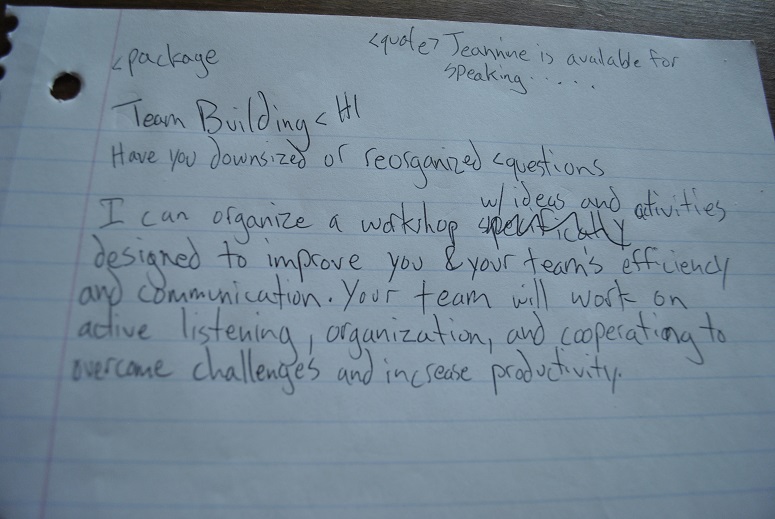 <package
<quote> Jeannine is available for
speaking.....
Team Building < H1
Have you downsized or reorganized <questions
w/ ideas and activities
I can organize a workshop specifically
designed to improve you & your team's efficiency
and communication. Your team will work on
active listening, organization, and cooperating to
overcome challenges and increase productivity.